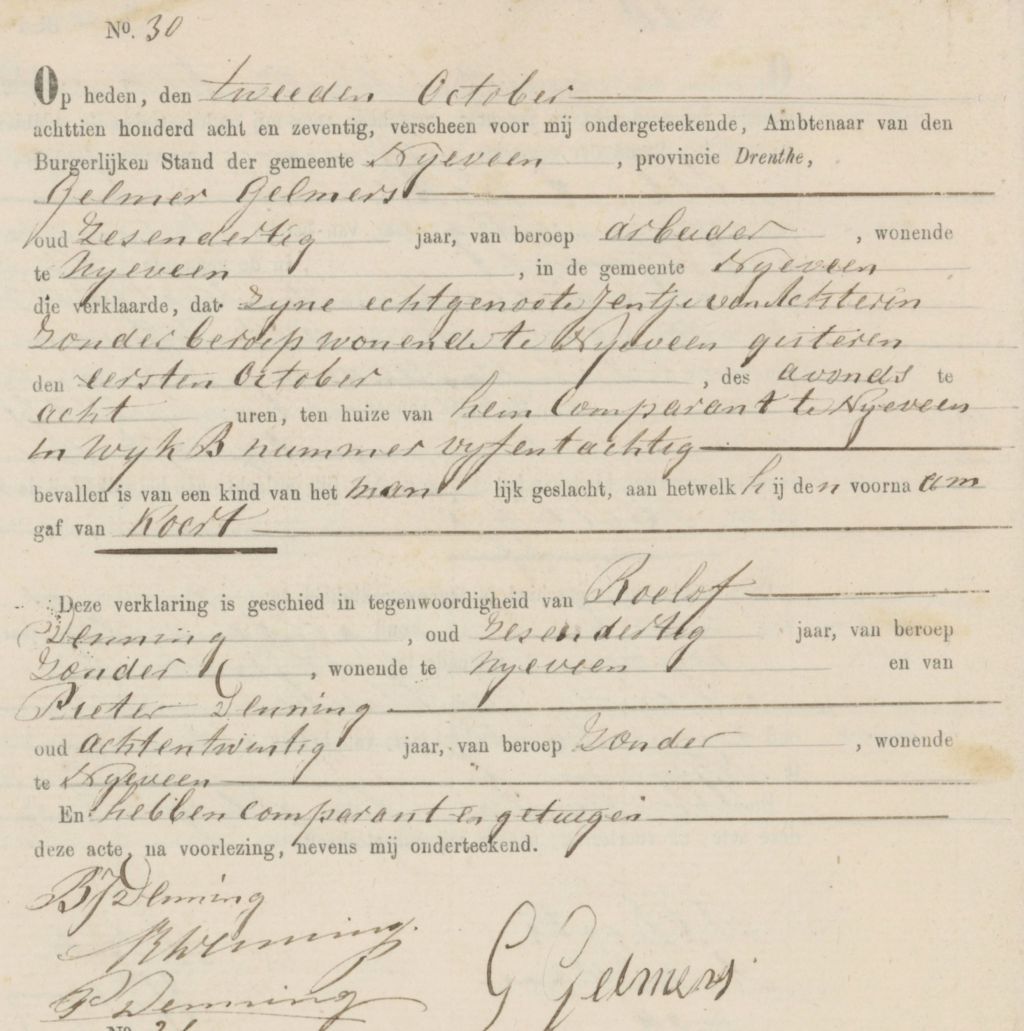 No. 30
Op heden, den tweeden October
achttien honderd acht en zeventig, verscheen voor mij ondergeteekende, Ambtenaar van den
Burgerlijken Stand der gemeente Nyeveen, provincie Drenthe,
Gelmer Gelmers
oud Zesendertig jaar, van beroep arbeider, wonende
te Nyeveen, in de gemeente Nyeveen
die verklaarde, dat Zyne echtgenoote Jentje van Achteren
Zonder beroep wonende te Nyeveen gisteren
den eersten October, des avonds te
acht uren, ten huize van hem Comparant te Nyeveen
in Wyk B nummer vyfentachtig
bevallen is van een kind van het manlijk geslacht, aan hetwelk hij den voornaam
gaf van Koert
Deze verklaring is geschied in tegenwoordigheid van Roelof
Denning, oud Zesendertig jaar, van beroep
Zonder, wonende te Nyeveen en van
Pieter Denning
oud achtentwintig jaar, van beroep Zonder, wonende
te Nyeveen
En hebben comparant en getuigen
deze acte, na voorlezing, nevens mij onderteekend.
Denning
Denning
P Denning
G Gelmers
No.